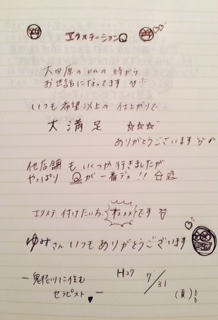 エクステーションQ
大田原の
お世話になってます
いつも希望以上の仕上がりに
大満足 ☆☆☆
ありがとうございます
他店舗もいくつか行きましたが
やっぱり Qが一番デス!!
エクステ付けたい人、 です
ゆみさん いつも ありがとうございます
-鬼怒川に住む
セラピスト-
H27 7/31